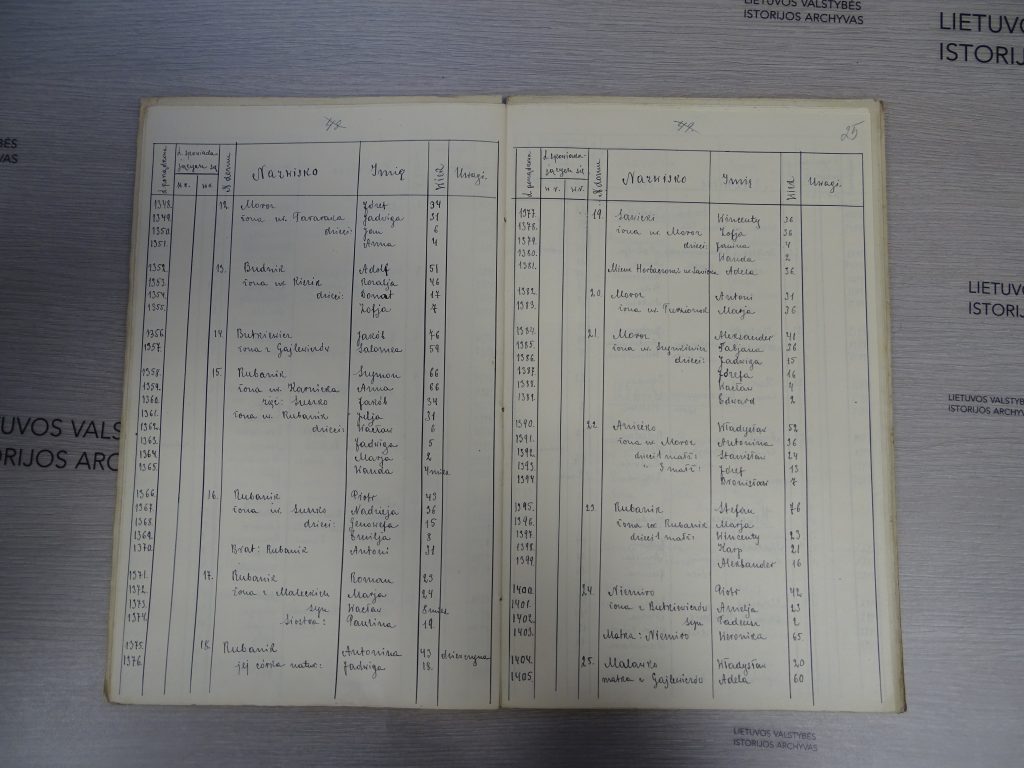 LIETUVOS VALSTYBĖS
ISTORIJOS ARCHYVAS
LIETUVO
ISTORIJ
25
L. porządkowa
L. spowiada-
jących się
N domu
Nazwisko
Imię
Wiek
Uwagi
1348. 12. Moroz Józef 34
1349. żona ur. Tararaua Jadwiga 31
1350. dzieci: Jan 6
1351. Anna 4
1352. 13. Budnik Adolf 51
1353. żona ur. Kizik Rozalja 46
1354. dzieci: Donat 17
1355. Zofja 7
1356. 14. Butkiewicz Jakób 76
1357. żona z Gajlewiczów Salomea 59
1358. 15. Rubanik Szymon 66
1359. żona ur. Karnicka Anna 66
1360. zięć: Suszko Jakób 34
1361. żona ur. Rubanik Julja 31
1362. dzieci: Wacław 6
1363. Jadwiga 5
1364. Marja 2
1365. Wanda 4 mies
1366. 16. Rubanik Piotr 43
1367. żona ur. Suszko Nadzieja 36
1368. dzieci: Genowefa 15
1369. Emilja 8
1370. Brat: Rubanik Antoni 31
1371. 17. Rubanik Roman 23
1372. żona z Maleckich Marja 24
1373. syn Wacław 8 mies
1374. siostra: Paulina 19
1375. 18. Rubanik Antonina 43 dziewczyna
1376. jej córka natur: Jadwiga 18.
L. porządkowa
L. spowiada-
jących się
N domu
Nazwisko
Imię
Wiek
Uwagi
1377. 19. Sawicki Wincenty 36
1378. żona ur. Moroz Zofja 36
1379. dzieci: Janina 4
1380. Wanda 2
1381. Adela 36
1382. 20. Moroz Antoni 31
1383. żona ur. Marja 36
1384. 21. Moroz Aleksander 41
1385. żona ur. Szymkiewicz Tatjana 36
1386. dzieci: Jadwiga 15
1387. Józefa 16
1388. Wacław 4
1389. Edward 2
1390. 22. Aniśko Władysław 52
1391. żona ur. Moroz Antonina 36
1392. dzieci 1 małż: Stanisław 24
1393. " 3 małż: Józef 13
1394 Bronisław 7
1395. 23. Rubanik Stefan 76
1396. żona ur. Rubanik Marja
1397. dzieci 1 małż: Wincenty 23
1398. Karp 21
1399. Aleksander 16
1400. 24. Niemiro Piotr 42
1401. żona z Butkiewiczów Amelja 23
1402. syn Tadeusz 2
1403. Matka: Niemiro Weronika 65
1404. 25. Malawko Władysław 20
1405. matka z Gajlewiczów Adela 60
LIETUVOS VALSTYBĖS
ISTORIJOS ARCHYVAS